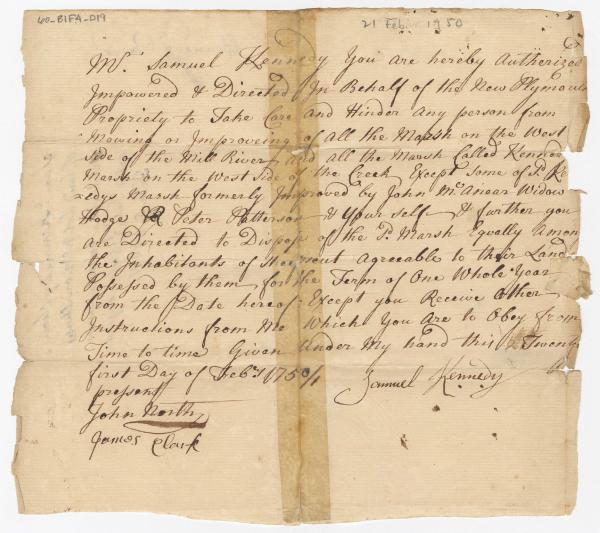 60-BIFA-D19
21 Feb 1750
Mr. Samuel Kennedy You are hereby Authorized
Impowered & Directed In Behalf of the New Plymouth
Propriety to Take Care and Hinder Any person from
Mowing or Improveing of all the Marsh on the West
side of the Mill River and all the Marsh Called Kennedys
Marsh on the West side of the Creek Except Some of sd. Ke
edys Marsh formerly Improved by John McAnear Widow
Hodge Peter Patterson & Your self & further you
are Directed to Dispose of the sd. Marsh Equally Among
the Inhabitants of agreeable to their Land
Possessed by them for the Term of One Whole Year
from the Date hereof Except you Receive Other
Instructions from Me Which You Are to Obey from
Time to time Given Under My hand this Twenty
first Day of Febr. 1750/1
Samuel Kennedy
pressent
John North
James Clark